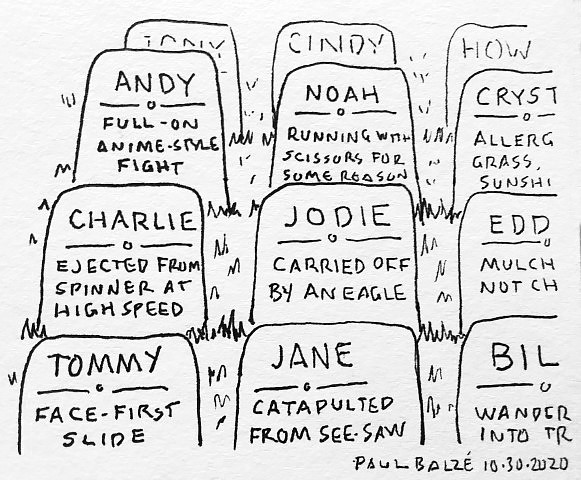 TONY
CINDY
HOW
ANDY
FULL-ON
ANIME-STYLE
FIGHT
NOAH
RUNNING WITH
SCISSORS FOR
SOME REASON
CRYST
ALLERG
GRASS,
SUNSHI
CHARLIE
EJECTED FROM
SPINNER AT
HIGH SPEED
JODIE
CARRIED OFF
BY AN EAGLE
EDD
MULCH
NOT CH
TOMMY
FACE-FIRST
SLIDE
JANE
CATAPULTED
FROM SEE-SAW
BIL
WANDER
INTO TR
PAUL BALZÉ 10.30.2020